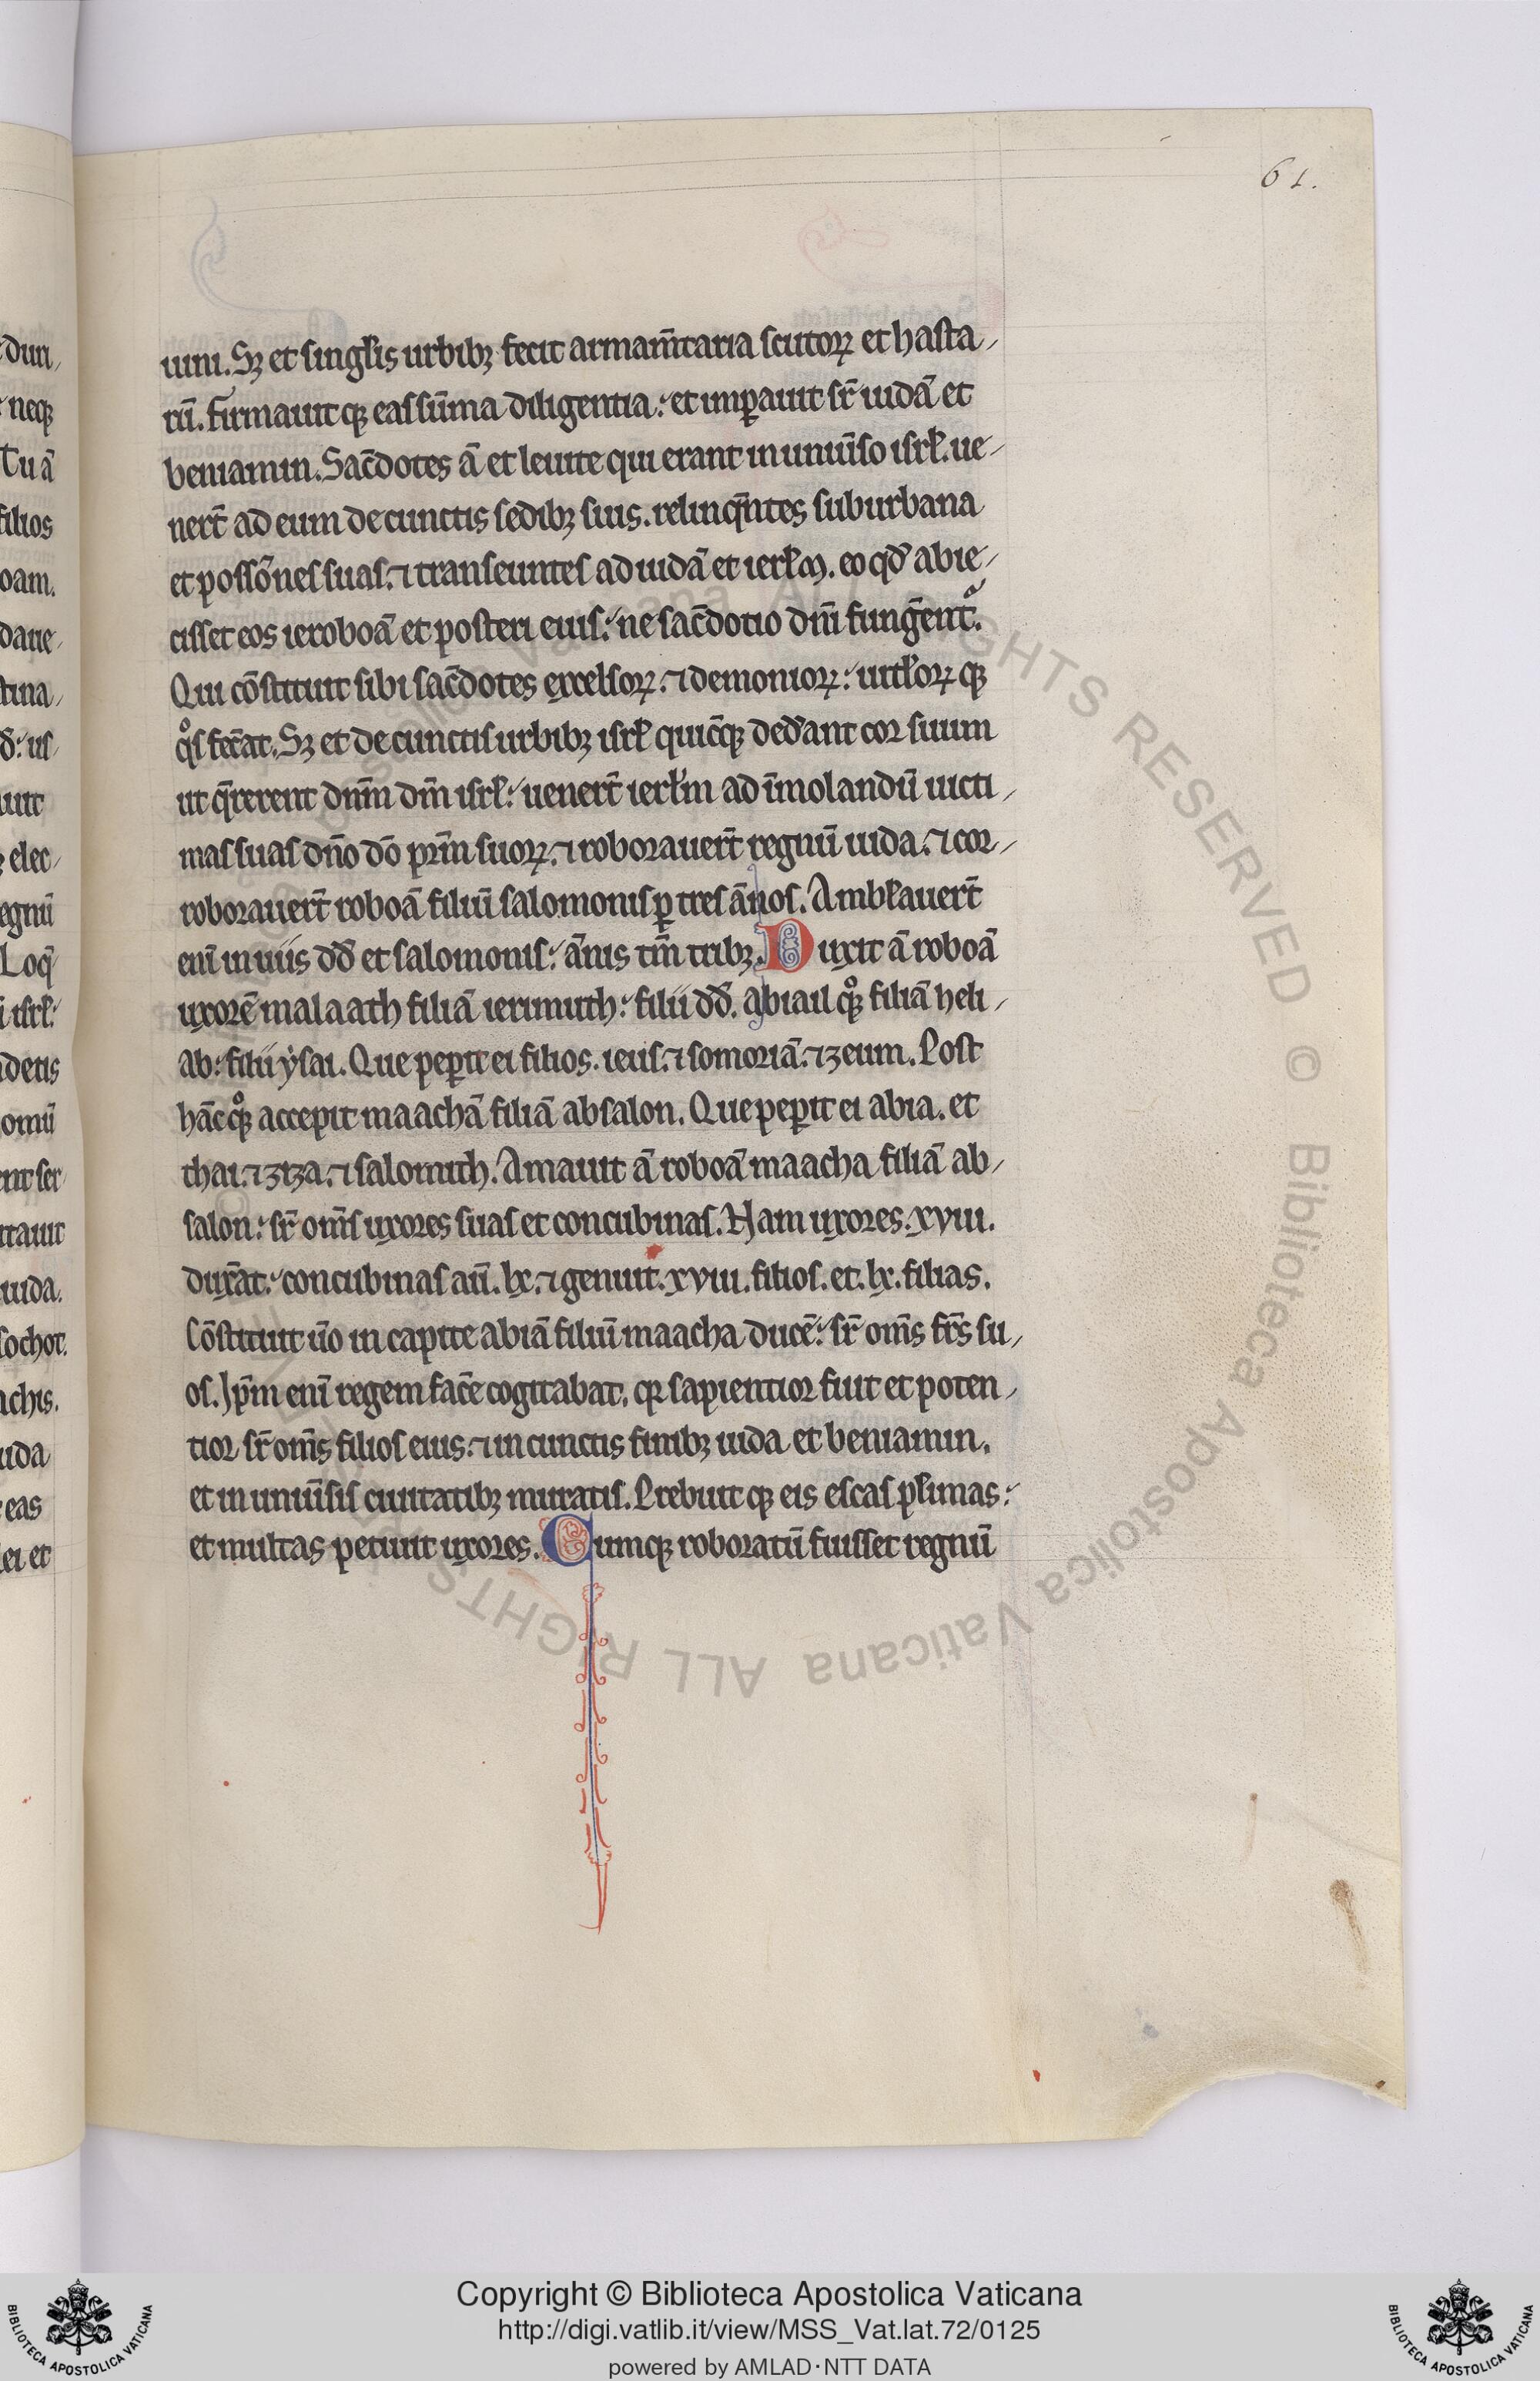 61.
uini. Sꝫ et singłis urbibꝫ fecit armam̄taria scutoꝝ et hasta
rū. Firmauitqꝫ eas sūma diligentia: et imꝑauit sr̄ iudā et
beniamin. Sac̄dotes ā et leuite qui erant in uniūso isrł. ue
nerr̄ ad eum de cunctis sedibꝫ suis. relinq̄ntes suburbana
et possōnes suas. ⁊ transeuntes ad iudā et ierłm. eo qd̄ abie
cisset eos ieroboā et posteri eius: ne sac̄dotio dn̄i funḡent᷑.
Qui cōstituit sibi sac̄dotes excelsoꝝ. ⁊ demonioꝝ: uitłoꝝqꝫ
qͦs fec̄at. Sꝫ et de cunctis urbibꝫ isrł quicq̄ꝫ ded̄ant cor suum
ut q̄rerent dnm̄ dm̄ isrł: uenerr̄ ierłm ad īmolandū uicti
mas suas dn̄o dō pr̄m suoꝝ. ⁊ roborauerr̄ regnū iuda. ⁊ cor
roborauerr̄ roboā filiū salomonis ꝑ tres ānos. Ambłauerr̄
enī in uiis dd̄ et salomonis: ānis tm̄ tribꝫ. Duxit ā roboā
uxorē malaath filiā ierimuth: filii dd̄. abiail qͦꝫ filiā heli
ab: filii ẏsai. Que peꝑit ei filios. ieus. ⁊ somoriā. ⁊ zeum. Post
hāc qͦꝫ accepit maachā filiā absalon. Que peꝑit ei abia. et
thai. ⁊ ziza. ⁊ salomith. Amauit ā roboā maacha filiā ab
salon: sr̄ om̄s uxores suas et concubinas. Nam uxores. xviii.
dux̄at: concubinas aū. lx. ⁊ genuit. xviii. filios. et. lx. filias.
Cōstituit ūo in capite abiā filiū maacha ducē: sr̄ om̄s fr̄s su
os. Ip̄m enī regem fac̄e cogitabat. qꝛ sapientior fuit et poten
tior sr̄ om̄s filios eius. ⁊ in cunctis finibꝫ iuda et beniamin.
et in uniūsis ciuitatibꝫ muratis. Prebuitqꝫ eis escas płimas:
et multas petiuit uxores. Cumqꝫ roboratū fuisset regnū
duri
neqꝫ
Tu ā
filios
oam.
elec
egnū
Loq̄
detis
omū
iuda.
sochot.
achis.
uda
eas
ei et
© Biblioteca Apostolica Vaticana ALL RIGHTS RESERVED
Copyright © Biblioteca Apostolica Vaticana
http://digi.vatlib.it/view/MSS_Vat.lat.72/0125
powered by AMLAD·NTT DATA
BIBLIOTECA APOSTOLICA VATICANA
BIBLIOTECA APOSTOLICA VATICANA